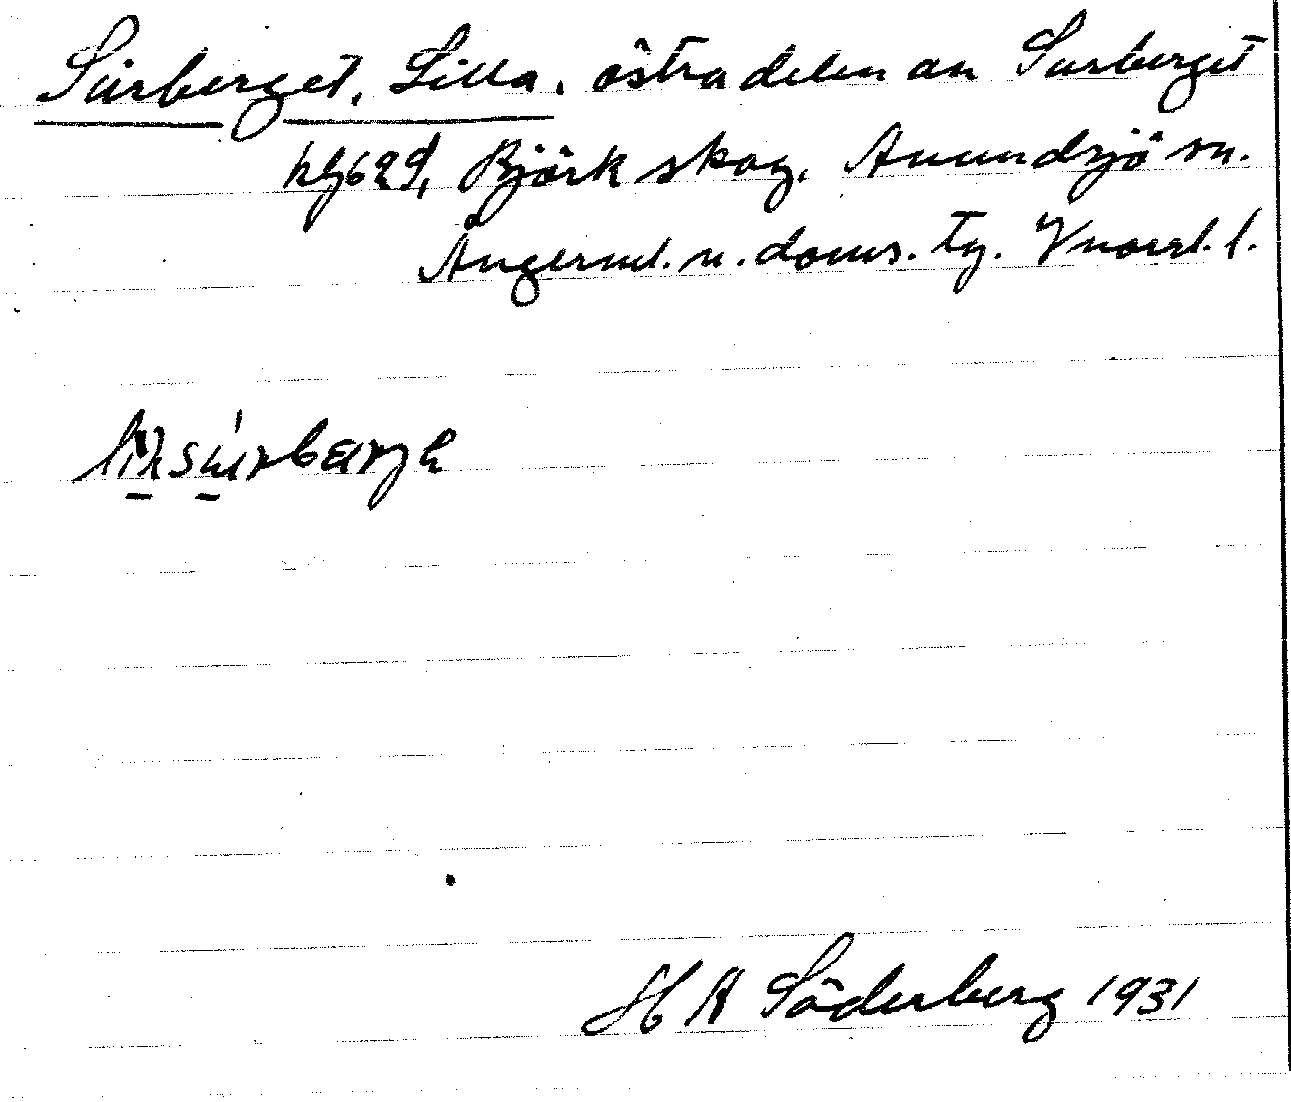 Surberget, Lilla, östra delen av Surberget
hg 629, Björkskog, Anundsjö sn.
Ångerml. n. doms. tg. Vnorrl. l.
H A Söderberg 1931